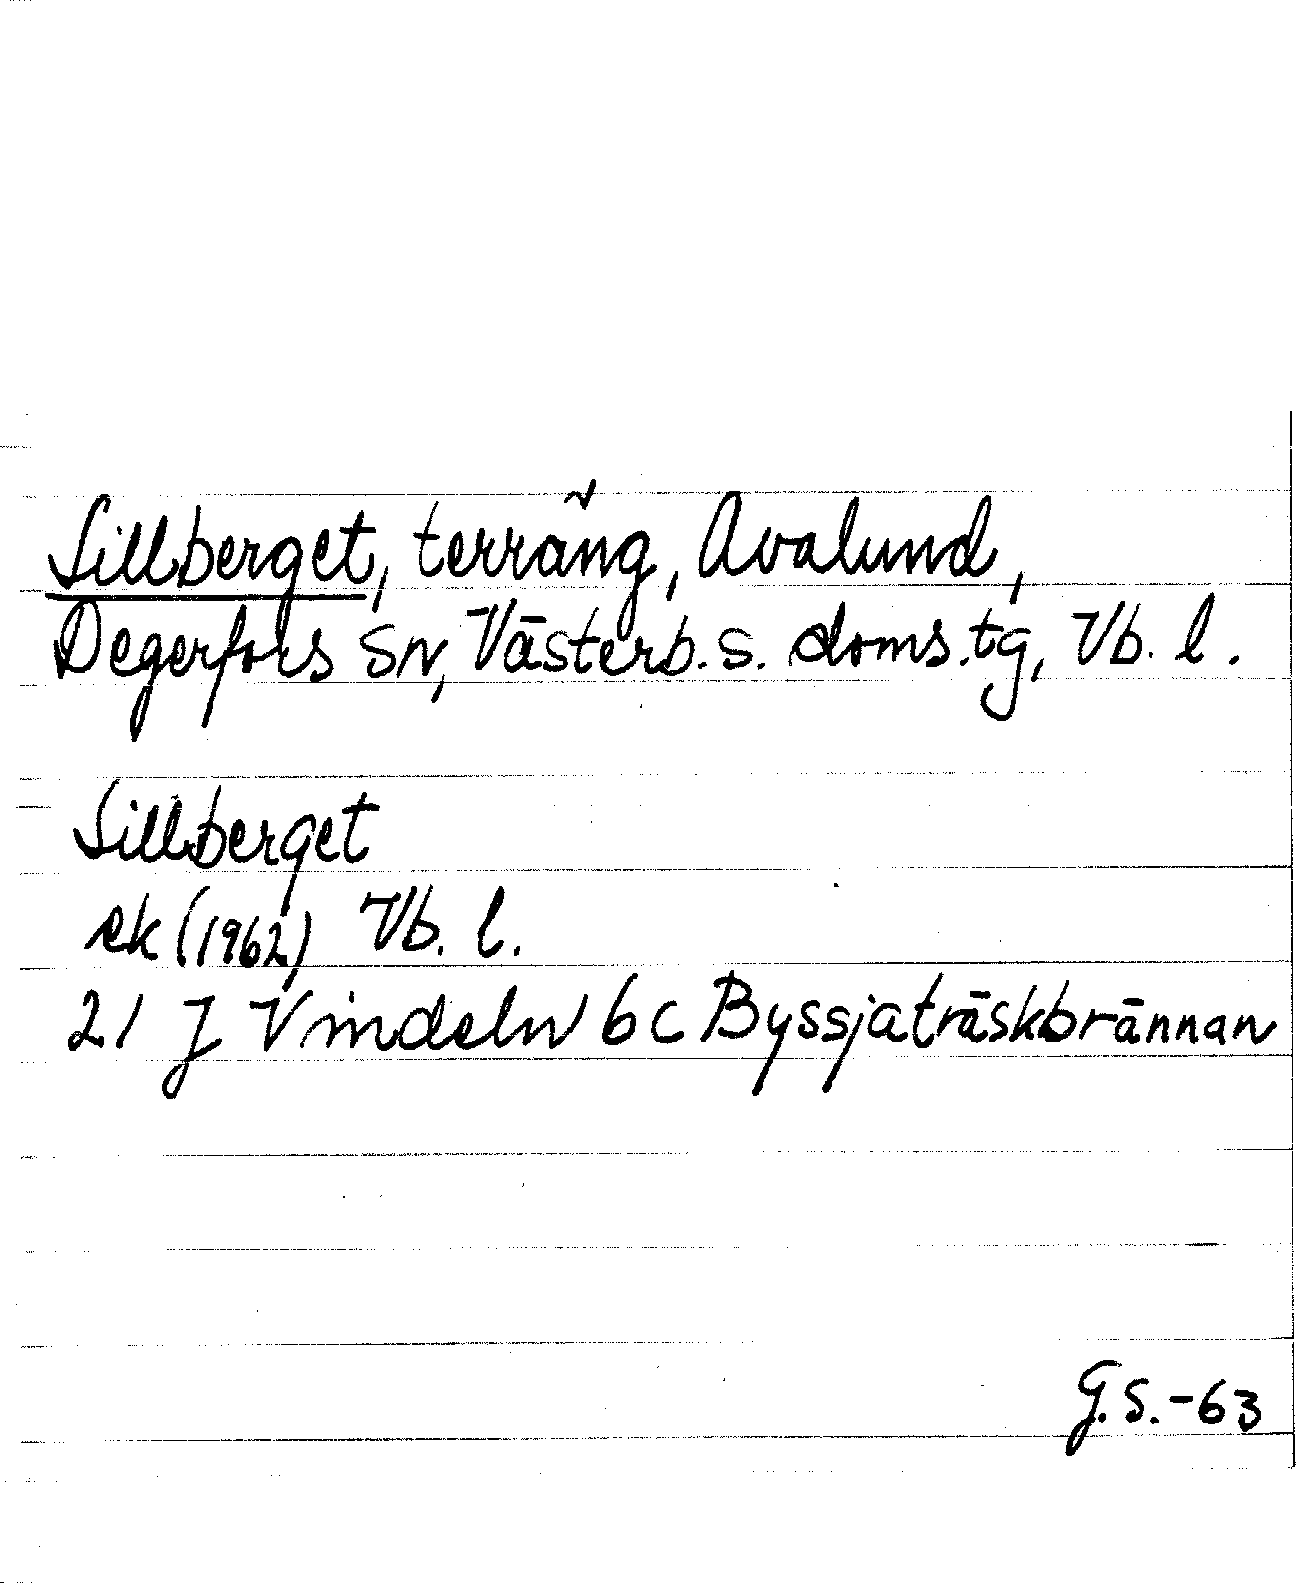 Sillberget, terräng, Avalund,
Degerfors sn, Västerb. s. doms.tg, Vb. l.
Sillberget
ek (1962) Vb. l.
21 J Vindeln 6c Byssjaträskbrännan
G.S.-63